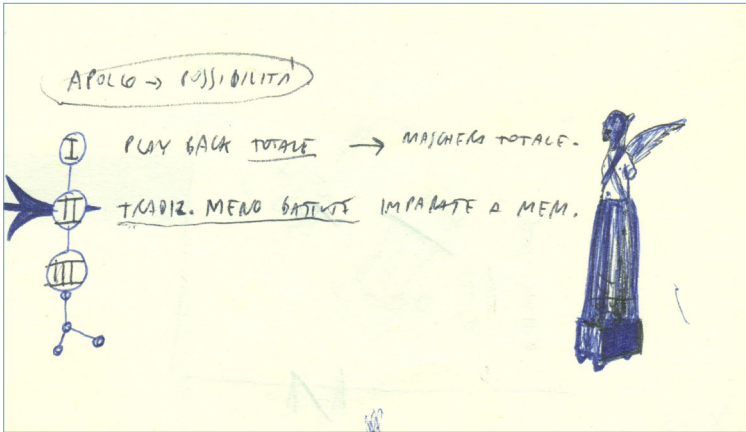 APOLLO → POSSIBILITÀ
I PLAY BACK TOTALE → MASCHERA TOTALE.
II TRADIZ. MENO BATTUTE IMPARATE A MEM.
III